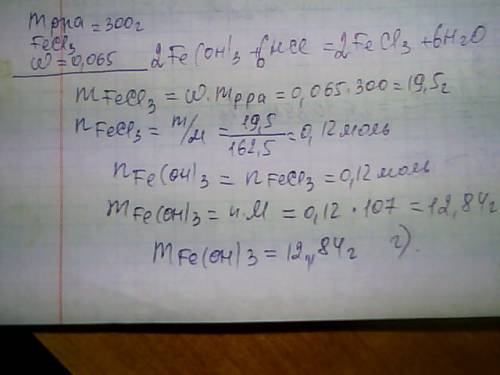 m рра = 300г
FeCl3
w = 0,065
2Fe(OH)3 + 6HCl = 2FeCl3 + 6H2O
mFeCl3 = w · mрра = 0,065 · 300 = 19,5г
nFeCl3 = m/M = 19,5/162,5 = 0,12 моль
nFe(OH)3 = nFeCl3 = 0,12 моль
mFe(OH)3 = n · M = 0,12 * 107 = 12,84г
mFe(OH)3 = 12,84г г).